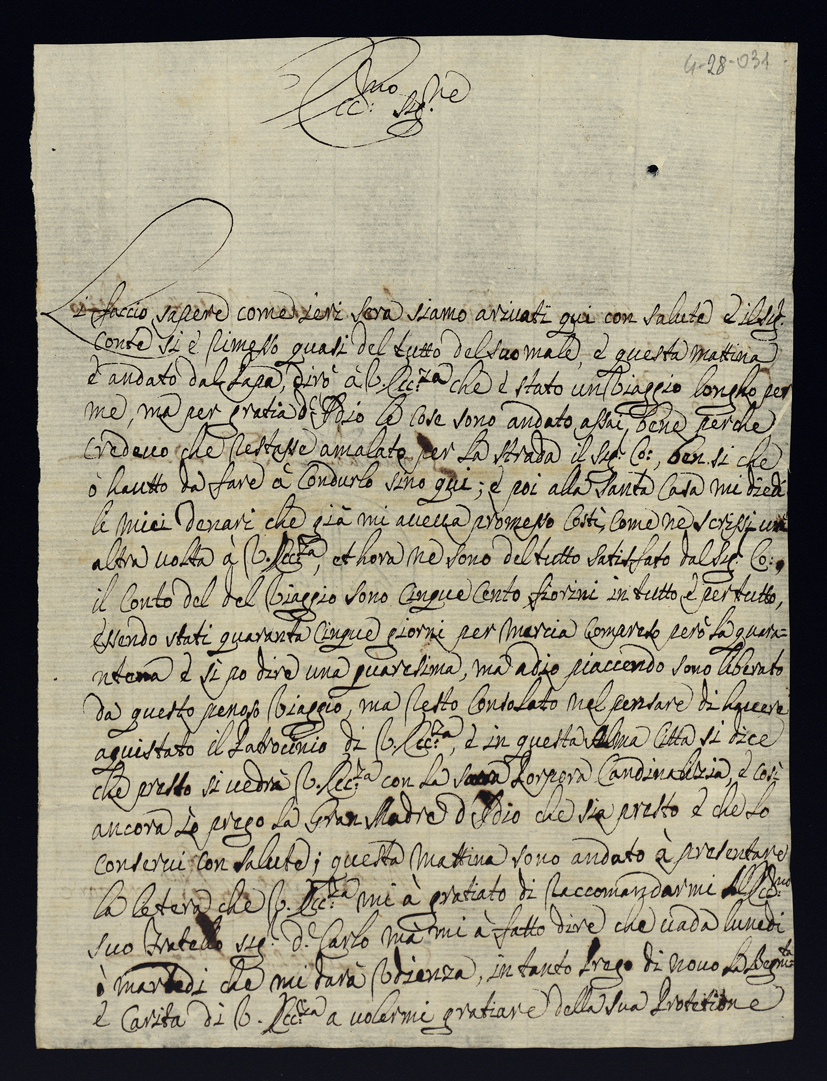 4-28-031
Ecc:mo Sig:re
Li faccio sapere come ieri sera siamo arivati qui con salute è il Sig:
Conte si è rimesso quasi del tutto del suo male, è questa mattina
è andato dal Papa, dirò à V. Ecc:za che è stato un Viaggio longho per
me, ma per gratia d' Idio le cose sono andato assai bene perche
credevo che restasse amalato per la strada il Sig: Co:, ben si che
ò hautto da fare à Condurlo sino qui; è poi alla Santa Casa mi diedi
li miei denari che già mi aveva promesso costi, come ne scrissi un
altra volta à V. Ecc:za, et hora ne sono del tutto satisfato dal Sig: Co:,
il Conto del del Viaggio sono Cinque Cento fiorini in tutto è per tutto,
essendo stati quaranta Cinque giorni per Marcia Compreso però la quara=
ntena è si po dire una quaresima, ma adio piaccendo sono liberato
da questo penoso Viaggio, ma resto Consolato nel pensare di havere
aquistato il Patrocinio di V. Ecc:za, è in questa Alma Citta si dice
che presto si vedrà V. Ecc:za con la sacra Porpora Cardinalizia, è così
ancora io prego la Gran Madre d' Idio che sia presto è che lo
conservi con salute; questa Mattina sono andato à presentare
la letera che V. Ecc:za mi à gratiato di raccomandarmi all Ecc:mo
suo Fratello Sig: D: Carlo ma mi à fatto dire che vada lunedi
ò martedi che mi darà Udienza, in tanto Prego di novo la
è Carita di V. Ecc:za a volermi gratiare della sua Protetione